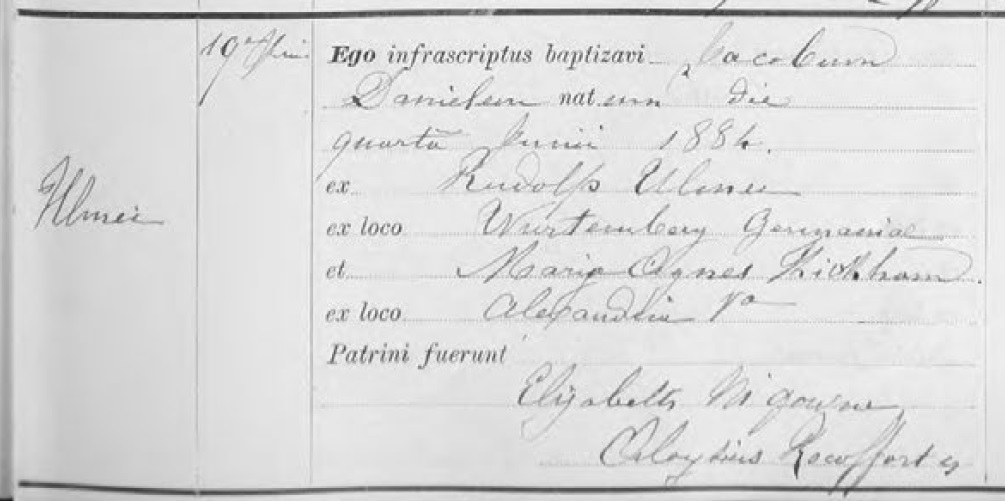 19a Junii
Ego infrascriptus baptizavi Jacobum
Danielem natum die
quarta Junii 1884.
ex Rudolf Ulmer
Ulmer
ex loco Wurtemberg Germaniae
et Maria Agnes Kickham.
ex loco Alexandria Va
Patrini fuerunt
Elizabeth
Aloysius Rocoffort